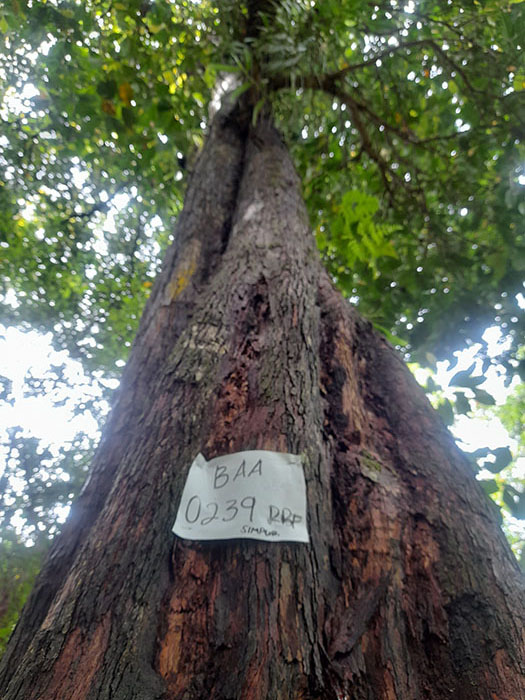 BAA
0239 RRF
SIMPUR